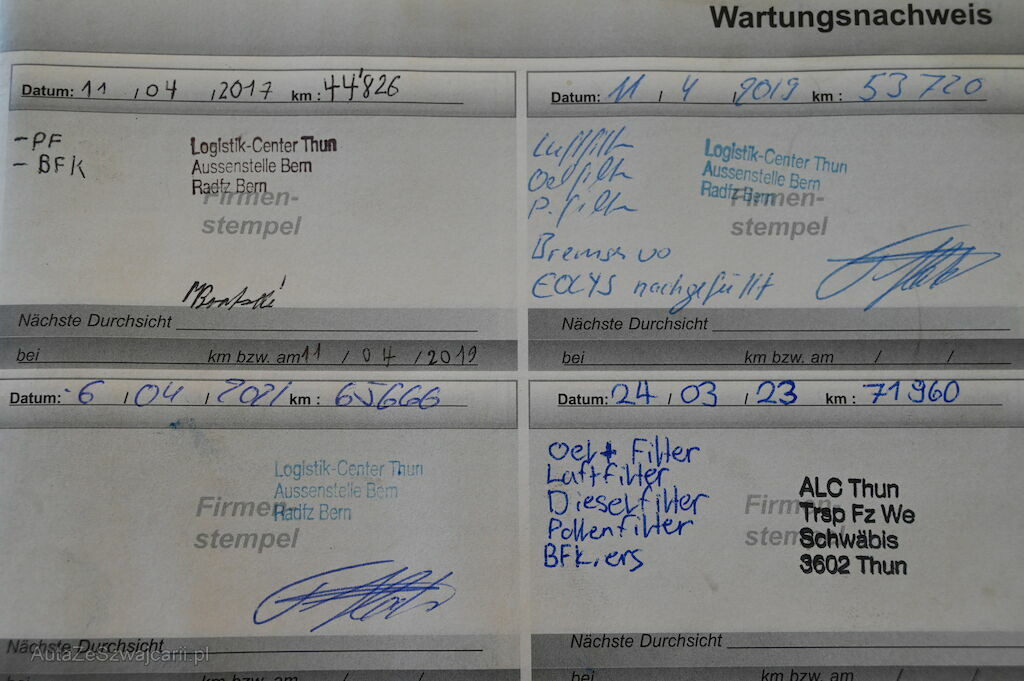 Wartungsnachweis
Datum: 11 / 04 / 2017 km : 44'826
- PF
- BFK
Logistik-Center Thun
Aussenstelle Bern
Radfz Bern
Firmen-
stempel
Nächste Durchsicht
bei km bzw. am 11 / 04 / 2019
Datum: 11 / 4 / 2019 km : 53720
Luftfilter
Oelfilter
P. Filter
Bremse vo
EOLYS nachgefüllt
Logistik-Center Thun
Aussenstelle Bern
Radfz Bern
Firmen-
stempel
Nächste Durchsicht
bei km bzw. am / /
Datum: 6 / 04 / 2021 km : 65666
Logistik-Center Thun
Aussenstelle Bern
Radfz Bern
Firmen-
stempel
Nächste Durchsicht
bei km bzw. am / /
Datum: 24 / 03 / 23 km : 71960
Oel + Filter
Luftfilter
Dieselfilter
Pollenfilter
BFK. ers
ALC Thun
Trsp Fz We
Schwäbis
3602 Thun
Firmen-
stempel
Nächste Durchsicht
bei km bzw. am / /
AutaZeSzwajcarii.pl